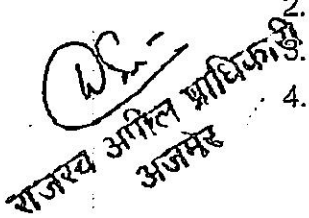 2.
3.
4.
राजस्व अपील प्राधिकारी
अजमेर